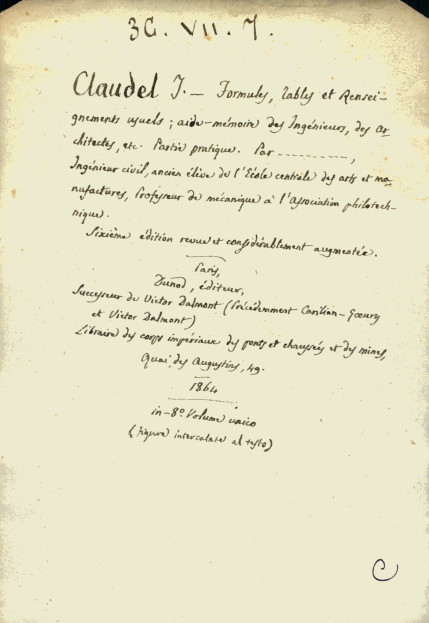 3G. VII. 7.
Claudel J. — Formules, Tables et Rensei-
gnements usuels; aide-mémoire des Ingénieurs, des Ar-
chitectes, etc. Partie pratique. Par ----------,
Ingénieur civil, ancien élève de l'École centrale des arts et ma-
nufactures, Professeur de mécanique à l'Association philotech-
nique.
Sixième édition revue et considérablement augmentée.
Paris,
Dunod, éditeur,
Successeur de Victor Dalmont (Précédemment Carilian-Goeury
et Victor Dalmont)
Libraire des corps impériaux des ponts et chaussées et des mines,
Quai des Augustins, 49.
1864
in-8º Volume unico
(figure intercalate al testo)
C